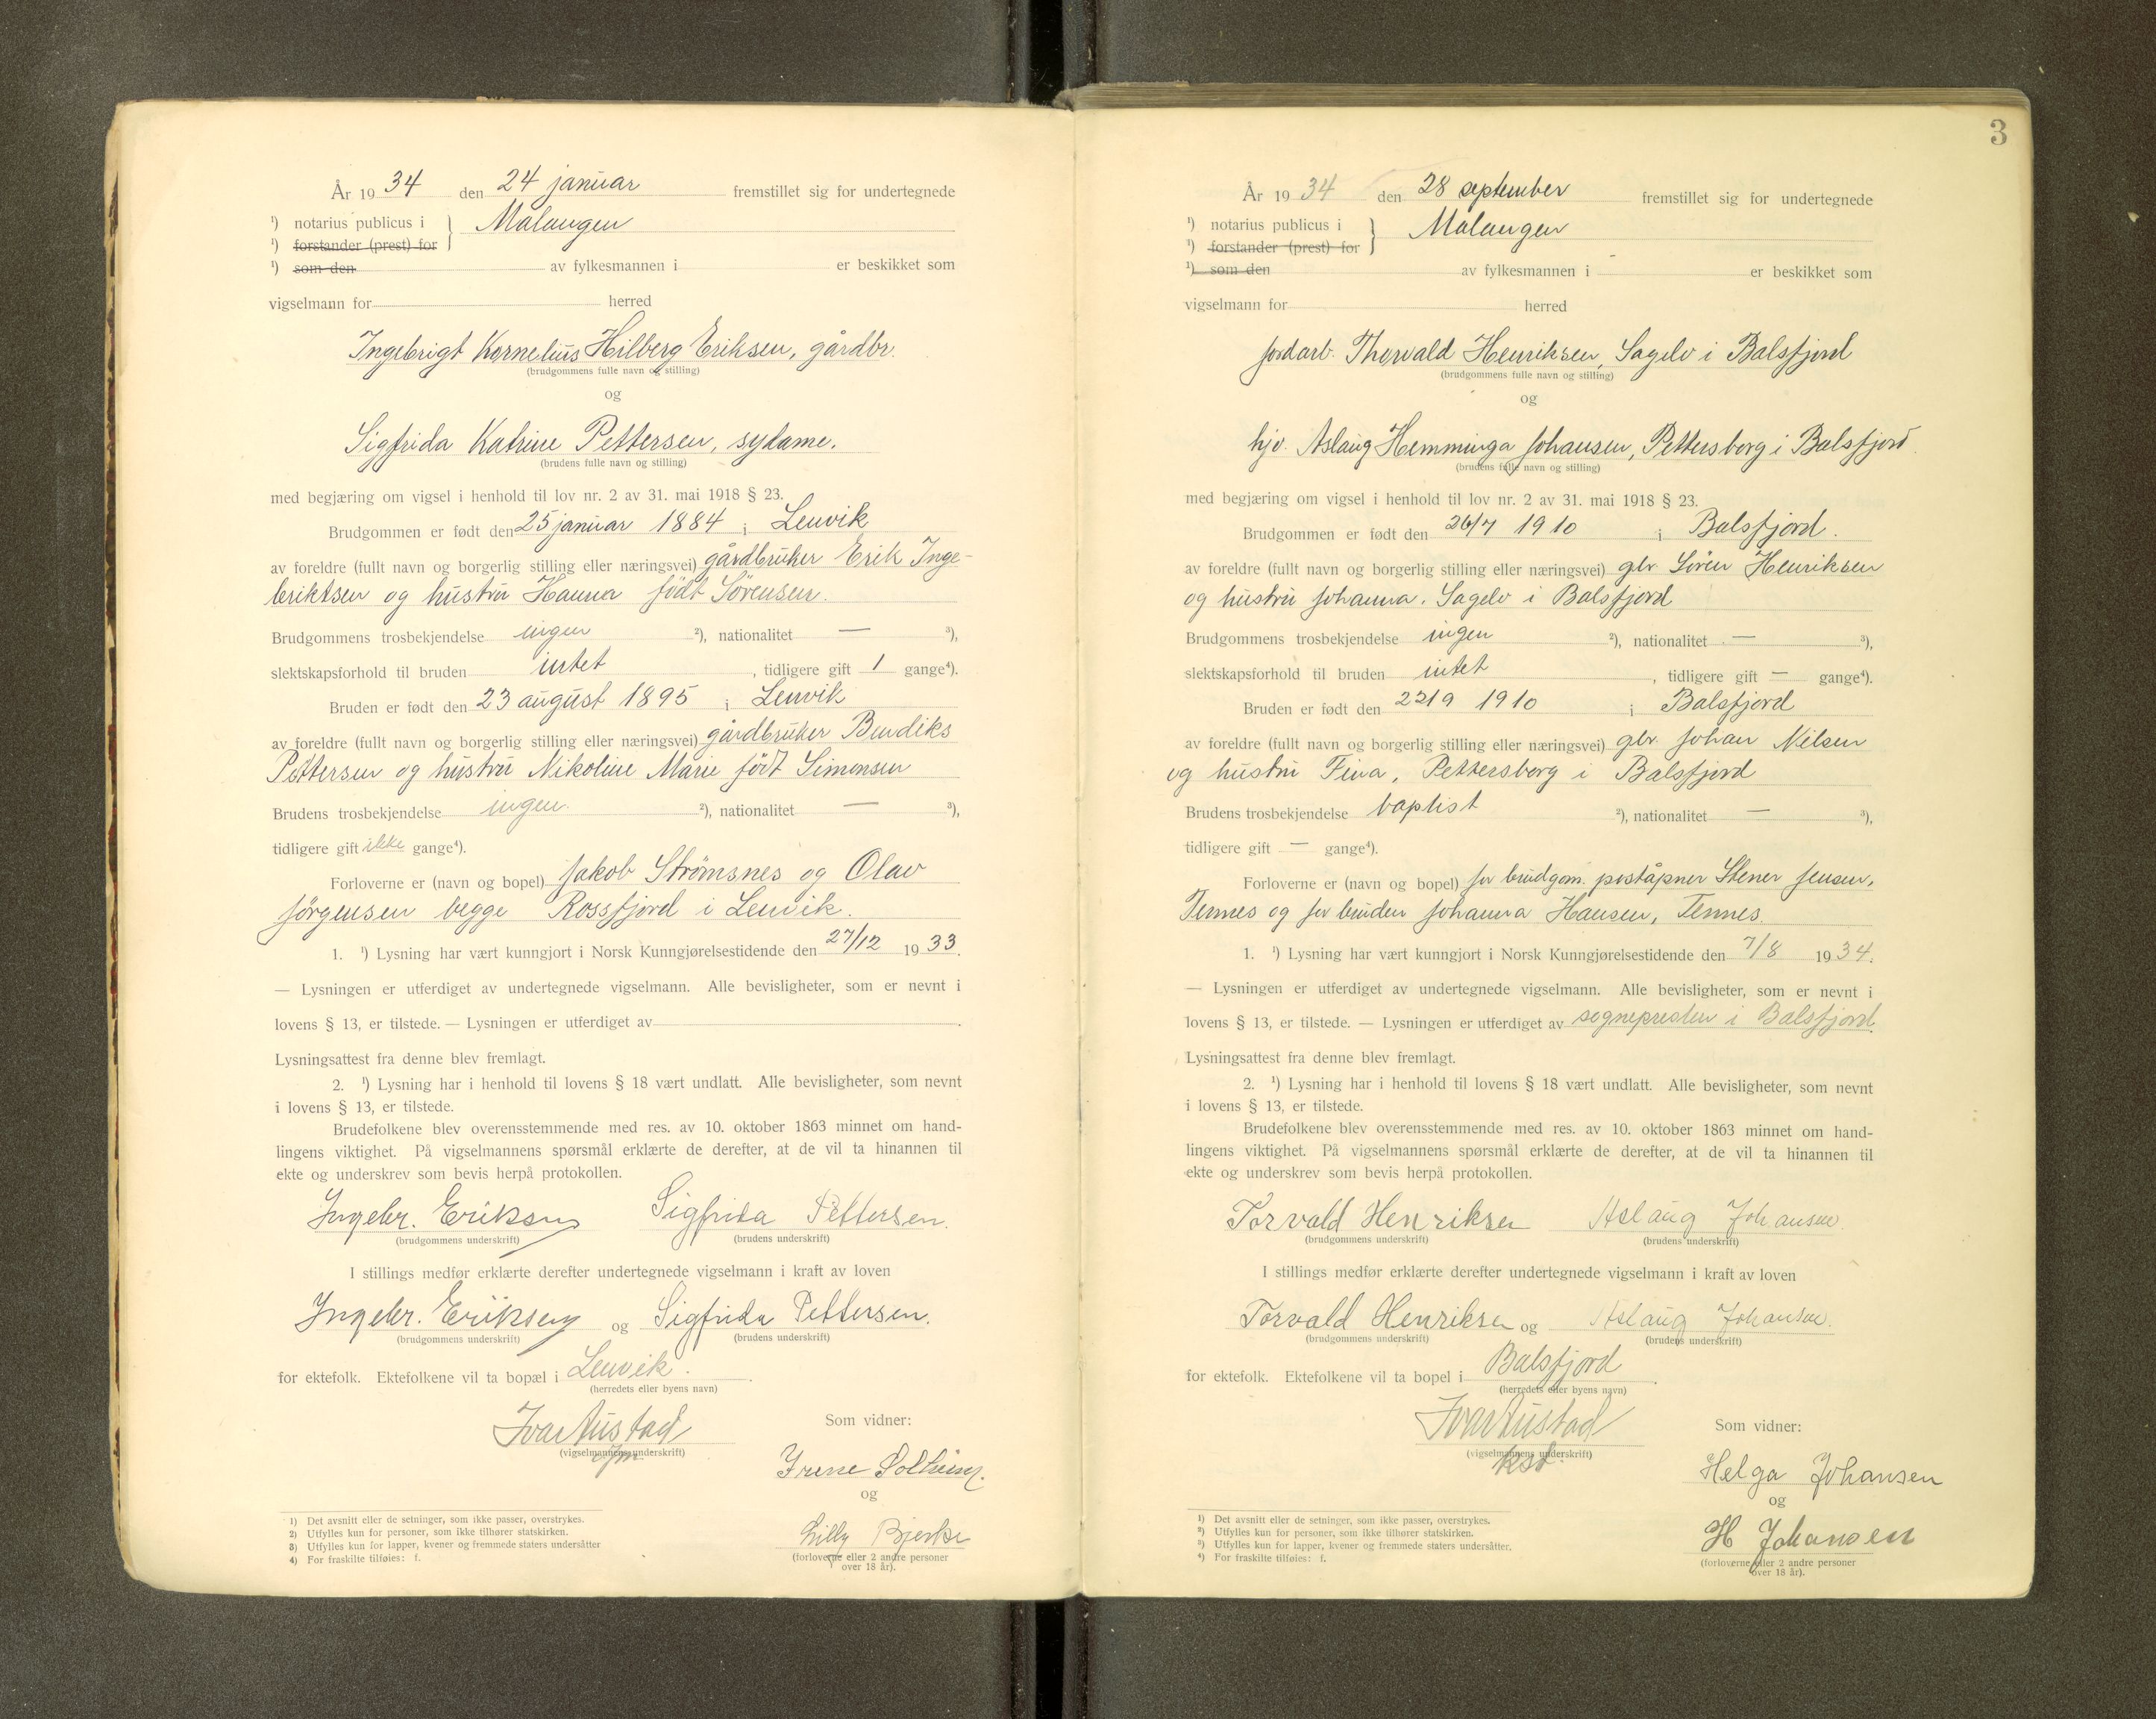 År 1934 den 24 januar fremstillet sig for undertegnede
¹) notarius publicus i } Malangen
¹) forstander (prest) for
¹) som den av fylkesmannen i er beskikket som
vigselmann for herred
Ingebrigt Kornelius Hilberg Eriksen, gårdbr.
(brudgommens fulle navn og stilling)
og
Sigfrida Katrine Pettersen, sydame.
(brudens fulle navn og stilling)
med begjæring om vigsel i henhold til lov nr. 2 av 31. mai 1918 § 23.
Brudgommen er født den 25 januar 1884 i Lenvik
av foreldre (fullt navn og borgerlig stilling eller næringsvei) gårdbruker Erik Inge-
briktsen og hustru Hanna født Sörensen.
Brudgommens trosbekjendelse ingen ²), nationalitet — ³),
slektskapsforhold til bruden intet, tidligere gift 1 gange⁴).
Bruden er født den 23 august 1895 i Lenvik
av foreldre (fullt navn og borgerlig stilling eller næringsvei) gårdbruker Bendiks
Pettersen og hustru Nikoline Marie født Simonsen
Brudens trosbekjendelse ingen. ²), nationalitet — ³),
tidligere gift ikke gange⁴).
Forloverne er (navn og bopel) Jakob Strømsnes og Olav
Jörgensen begge Rossfjord i Lenvik.
1. ¹) Lysning har vært kunngjort i Norsk Kunngjørelsestidende den 27/12 1933.
— Lysningen er utferdiget av undertegnede vigselmann. Alle bevisligheter, som er nevnt i
lovens § 13, er tilstede. — Lysningen er utferdiget av .
Lysningsattest fra denne blev fremlagt.
2. ¹) Lysning har i henhold til lovens § 18 vært undlatt. Alle bevisligheter, som nevnt
i lovens § 13, er tilstede.
Brudefolkene blev overensstemmende med res. av 10. oktober 1863 minnet om hand-
lingens viktighet. På vigselmannens spørsmål erklærte de derefter, at de vil ta hinannen til
ekte og underskrev som bevis herpå protokollen.
Ingebr. Eriksen Sigfrida Pettersen.
(brudgommens underskrift) (brudens underskrift)
I stillings medfør erklærte derefter undertegnede vigselmann i kraft av loven
Ingebr. Eriksen og Sigfrida Pettersen.
(brudgommens underskrift) (brudens underskrift)
for ektefolk. Ektefolkene vil ta bopæl i Lenvik.
(herredets eller byens navn)
Ivar Austad
(vigselmannens underskrift)
Som vidner:
Irene Solheim.
og
Lilly Bjerke
(forloverne eller 2 andre personer
over 18 år).
1) Det avsnitt eller de setninger, som ikke passer, overstrykes.
2) Utfylles kun for personer, som ikke tilhører statskirken.
3) Utfylles kun for lapper, kvener og fremmede staters undersåtter
4) For fraskilte tilføies: f.
3
År 1934 den 28 september fremstillet sig for undertegnede
¹) notarius publicus i } Malangen
¹) forstander (prest) for
¹) som den av fylkesmannen i er beskikket som
vigselmann for herred
jordarb. Thorvald Henriksen, Sagelv i Balsfjord
(brudgommens fulle navn og stilling)
og
hjv. Aslaug Hemminga Johansen, Pettersborg i Balsfjord.
(brudens fulle navn og stilling)
med begjæring om vigsel i henhold til lov nr. 2 av 31. mai 1918 § 23.
Brudgommen er født den 26/7 1910 i Balsfjord.
av foreldre (fullt navn og borgerlig stilling eller næringsvei) gbr Sören Henriksen
og hustru Johanna. Sagelv i Balsfjord
Brudgommens trosbekjendelse ingen ²), nationalitet — ³),
slektskapsforhold til bruden intet, tidligere gift — gange⁴).
Bruden er født den 22/9 1910 i Balsfjord
av foreldre (fullt navn og borgerlig stilling eller næringsvei) gbr Johan Nilsen
og hustru Fina, Pettersborg i Balsfjord
Brudens trosbekjendelse baptist ²), nationalitet — ³),
tidligere gift — gange⁴).
Forloverne er (navn og bopel) for brudgom. poståpner Stener Jensen,
Tennes og for bruden Johanna Hansen, Tennes.
1. ¹) Lysning har vært kunngjort i Norsk Kunngjørelsestidende den 7/8 1934.
— Lysningen er utferdiget av undertegnede vigselmann. Alle bevisligheter, som er nevnt i
lovens § 13, er tilstede. — Lysningen er utferdiget av sognepresten i Balsfjord.
Lysningsattest fra denne blev fremlagt.
2. ¹) Lysning har i henhold til lovens § 18 vært undlatt. Alle bevisligheter, som nevnt
i lovens § 13, er tilstede.
Brudefolkene blev overensstemmende med res. av 10. oktober 1863 minnet om hand-
lingens viktighet. På vigselmannens spørsmål erklærte de derefter, at de vil ta hinannen til
ekte og underskrev som bevis herpå protokollen.
Torvald Henriksen Aslaug Johansen.
(brudgommens underskrift) (brudens underskrift)
I stillings medfør erklærte derefter undertegnede vigselmann i kraft av loven
Torvald Henriksen og Aslaug Johansen.
(brudgommens underskrift) (brudens underskrift)
for ektefolk. Ektefolkene vil ta bopel i Balsfjord.
(herredets eller byens navn)
Ivar Austad
(vigselmannens underskrift)
kst.
Som vidner:
Helga Johansen
og
H Johansen
(forloverne eller 2 andre personer
over 18 år).
1) Det avsnitt eller de setninger, som ikke passer, overstrykes.
2) Utfylles kun for personer, som ikke tilhører statskirken.
3) Utfylles kun for lapper, kvener og fremmede staters undersåtter.
4) For fraskilte tilføies: f.